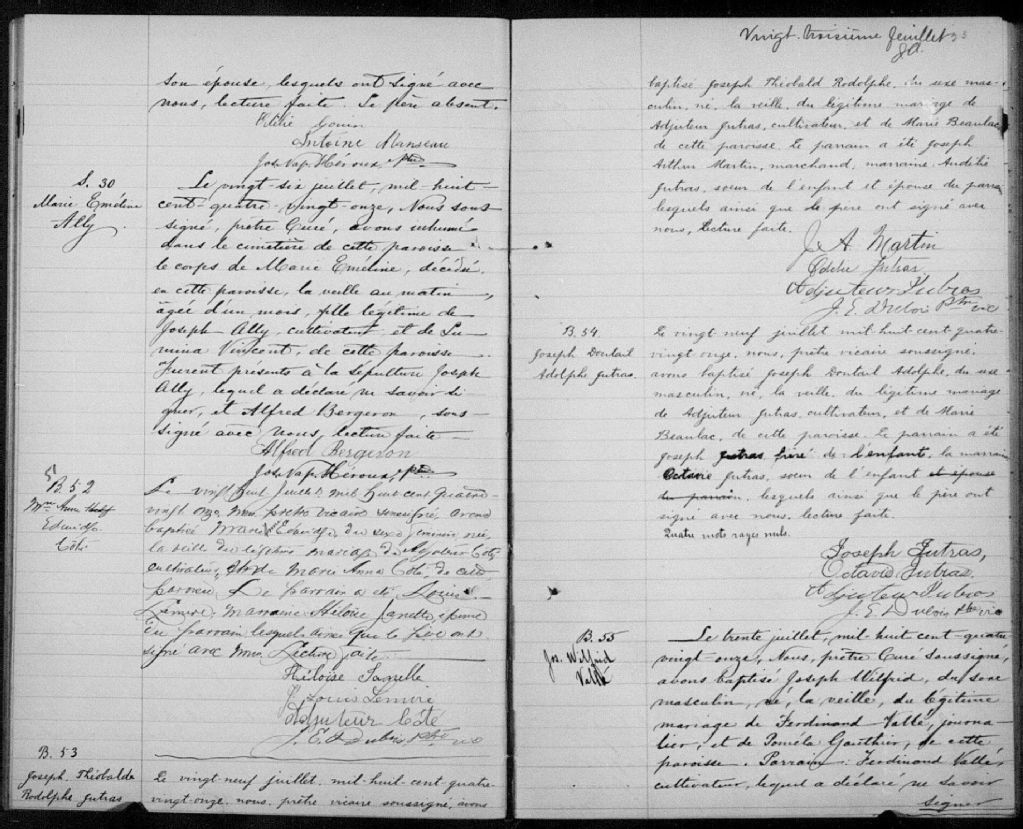 son épouse, lesquels ont signé avec
nous, lecture faite. Le père absent.
Antoine Manseau
Jos. Nap. Héroux Ptre
S. 30
Marie Eméline
Ally
Le vingt-six juillet, mil huit-
cent-quatre-vingt-onze, Nous sous-
signé, prêtre Curé, avons inhumé
dans le cimetière de cette paroisse
le corps de Marie Eméline, décédée
en cette paroisse, la veille au matin,
âgée d'un mois, fille légitime de
Joseph Ally cultivateur et de Lu-
mina Vincent, de cette paroisse.
Furent présents à la sépulture Joseph
Ally, lequel a déclaré ne savoir si-
gner, et Alfred Bergeron, sous-
signé avec nous, lecture faite
Alfred Bergeron
Jos. Nap. Héroux, Ptre
B. 52
Edwidge
Côté
Le vingt huit Juillet mil huit cent quatre
vingt onze nous prêtre vicaire soussigné, avons
baptisé Marie Edwidge du sexe féminin née
la veille du légitime mariage de Adjuteur Coté
cultivateur, et de Marie Anna Coté, de cette
paroisse Le parrain a été Louis
Lemire, Marraine Héloïse Janelle, épouse
du parrain lesquels ainsi que le père ont
signé avec nous. Lecture faite
Héloïse Janelle
Louis Lemire
Adjuteur Coté
J. E. Dubois Ptre vic
B. 53
Joseph Théobalde
Rodolphe Jutras
Le vingt-neuf juillet mil-huit-cent-quatre-
vingt-onze, nous, prêtre vicaire soussigné, avons
Vingt-troisième feuillet
baptisé Joseph Théobald Rodolphe, du sexe mas-
culin, né, la veille, du légitime mariage de
Adjuteur Jutras, cultivateur, et de Marie Beaulac,
de cette paroisse. Le parrain a été Joseph
Arthur Martin, marchand, marraine
Jutras, soeur de l'enfant et épouse du parrain
lesquels ainsi que le père ont signé avec
nous, lecture faite.
J. A Martin
Jutras
Adjuteur Jutras
J. E. Dubois Ptre vic
B. 54
Joseph Dontail
Adolphe Jutras.
Le vingt neuf juillet mil-huit cent quatre-
vingt onze, nous, prêtre vicaire soussigné,
avons baptisé Joseph Dontail Adolphe, du sexe
masculin, né, la veille, du légitime mariage
de Adjuteur Jutras, cultivateur, et de Marie
Beaulac, de cette paroisse. Le parrain a été
Joseph Jutras, frère de l'enfant, la marraine
Octavie Jutras, soeur de l'enfant et épouse
du parrain, lesquels ainsi que le père ont
signé avec nous, lecture faite.
Quatre mots rayés nuls.
Joseph Jutras,
Octavie Jutras.
Adjuteur Jutras
J. E. Dubois Ptre vic
B. 55
Jos. Wilfrid
Vallé
Le trente juillet, mil huit cent-quatre
vingt-onze, Nous, prêtre Curé soussigné,
avons baptisé Joseph Wilfrid, du sexe
masculin, né, la veille, du légitime
mariage de Ferdinand Vallé, journa-
lier, et de Poméla Gauthier, de cette
paroisse. Parrain: Ferdinand Vallé,
cultivateur, lequel a déclaré ne savoir
signer